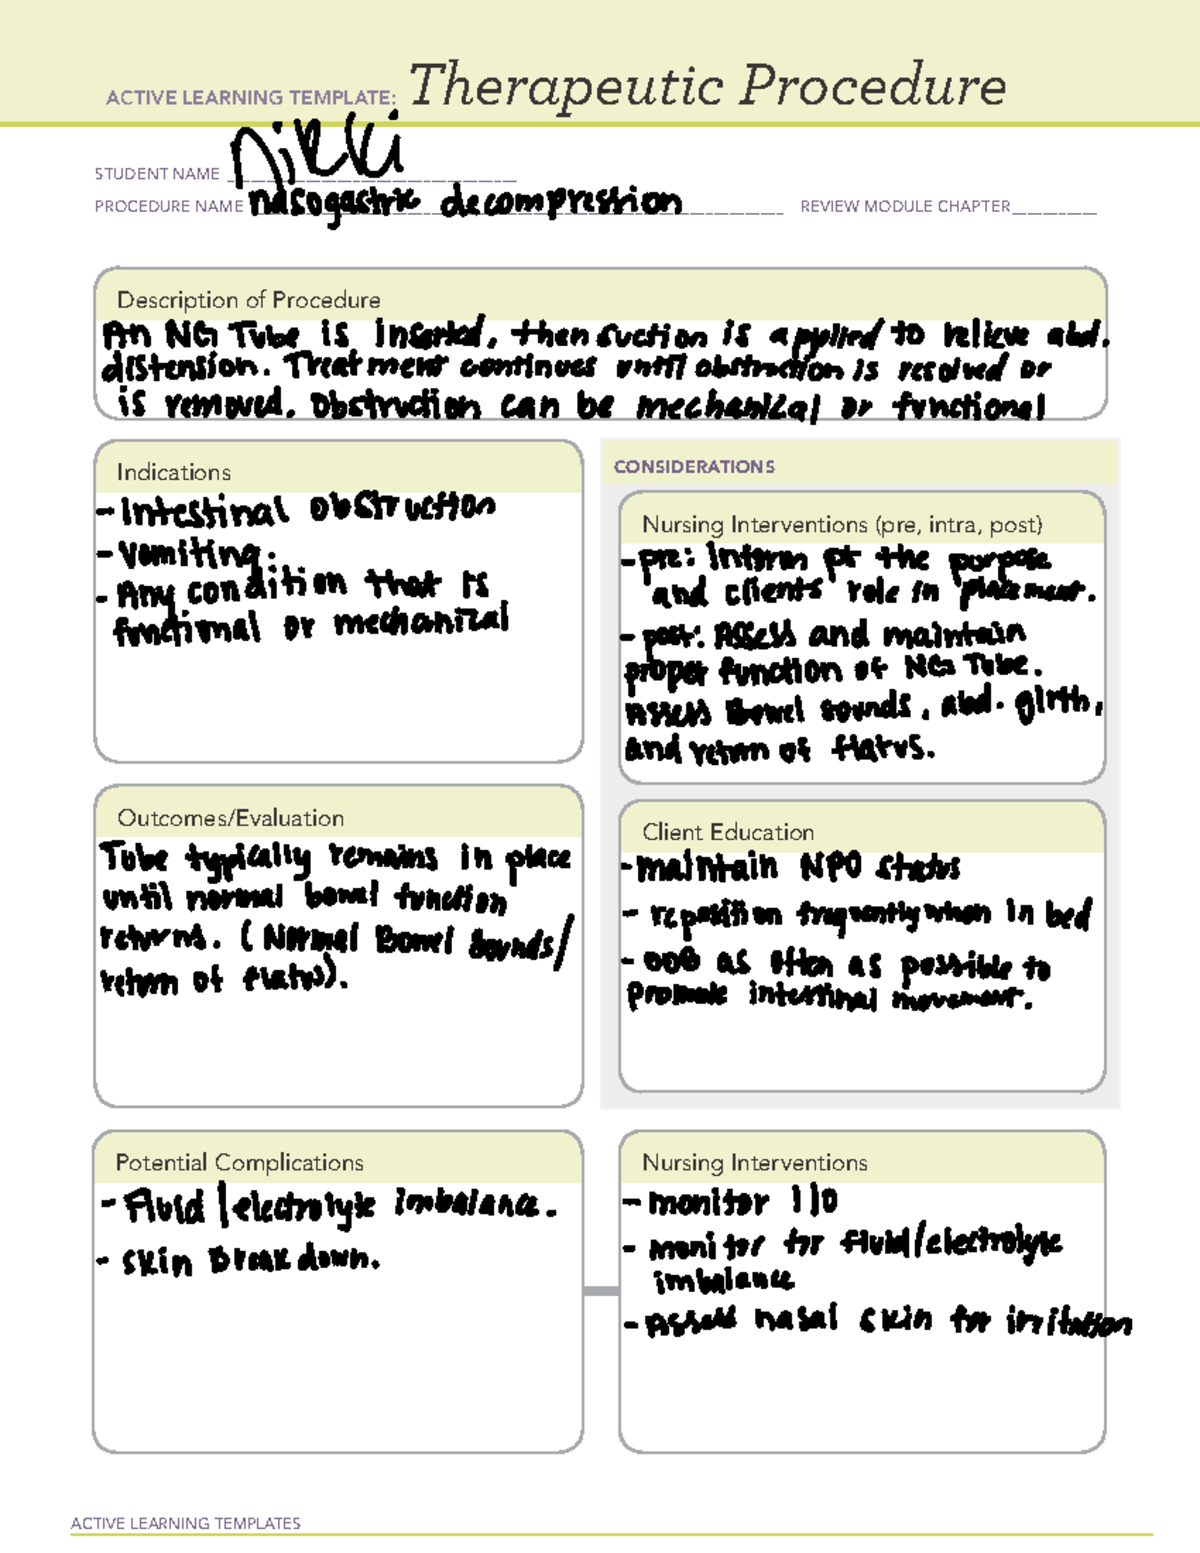 ACTIVE LEARNING TEMPLATE: Therapeutic Procedure
STUDENT NAME Nikki
PROCEDURE NAME nasogastric decompression REVIEW MODULE CHAPTER
Description of Procedure
An NG Tube is inserted, then suction is applied to relieve abd.
distension. Treatment continues until obstruction is resolved or
is removed. Obstruction can be mechanical or functional
Indications
- Intestinal obstruction
- Vomiting.
- Any condition that is
functional or mechanical
CONSIDERATIONS
Nursing Interventions (pre, intra, post)
- pre: Inform pt the purpose
and clients role in placement.
- post: Assess and maintain
proper function of NG Tube.
Assess Bowel sounds, abd. girth,
and return of flatus.
Outcomes/Evaluation
Tube typically remains in place
until normal bowel function
returns. (Normal Bowel sounds/
return of flatus).
Client Education
- maintain NPO status
- reposition frequently when in bed
- OOB as often as possible to
promote intestinal movement.
Potential Complications
- Fluid/electrolyte imbalance.
- skin breakdown.
Nursing Interventions
- monitor I/O
- monitor for fluid/electrolyte
imbalance
- Assess nasal skin for irritation
ACTIVE LEARNING TEMPLATES